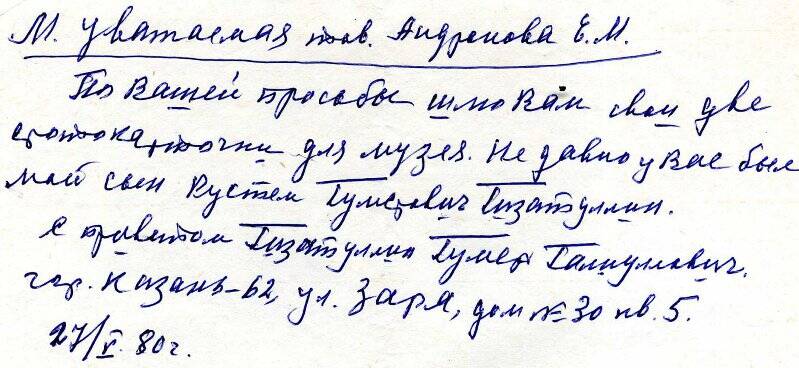 М. уважаемая тов. Андронова Е.М.
По Вашей прособы шлю Вам свои две
фотокарточки для музея. Не давно у Вас был
мой сын Рустем Гумерович Гизатуллин.
С приветом Гизатуллин Гумер Галиуллович.
гор. Казань-62, ул. Заря, дом № 30 кв. 5.
27/V. 80 г.